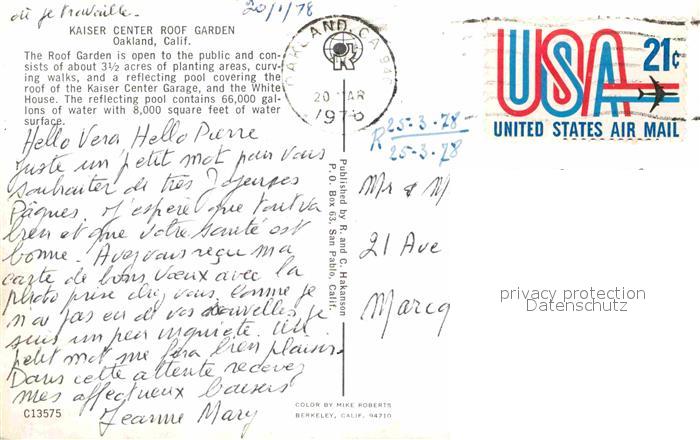 où je travaille.
20/1/78
KAISER CENTER ROOF GARDEN
Oakland, Calif.
The Roof Garden is open to the public and con-
sists of about 3½ acres of planting areas, curv-
ing walks, and a reflecting pool covering the
roof of the Kaiser Center Garage, and the White
House. The reflecting pool contains 66,000 gal-
lons of water with 8,000 square feet of water
surface.
Hello Vera Hello Pierre
juste un petit mot pour vous
souhaiter de très Joyeuses
Pâques. J'espère que tout va
bien et que votre santé est
bonne. Avez vous reçu ma
carte de bons vœux avec la
photo prise chez vous. Comme je
n'ai pas eu de vos nouvelles je
suis un peu inquiète. Un
petit mot me fera bien plaisir.
Dans cette attente recevez
mes affectueux baisers
Jeanne Mary
C13575
OAKLAND, CA 946
20 MAR
1978
R 25-3-78
25-3-78
USA 21¢
UNITED STATES AIR MAIL
Published by R. and C. Hakanson
P. O. Box 63, San Pablo, Calif.
Mr & M
21 Ave
Marcq
privacy protection
Datenschutz
COLOR BY MIKE ROBERTS
BERKELEY, CALIF. 94710